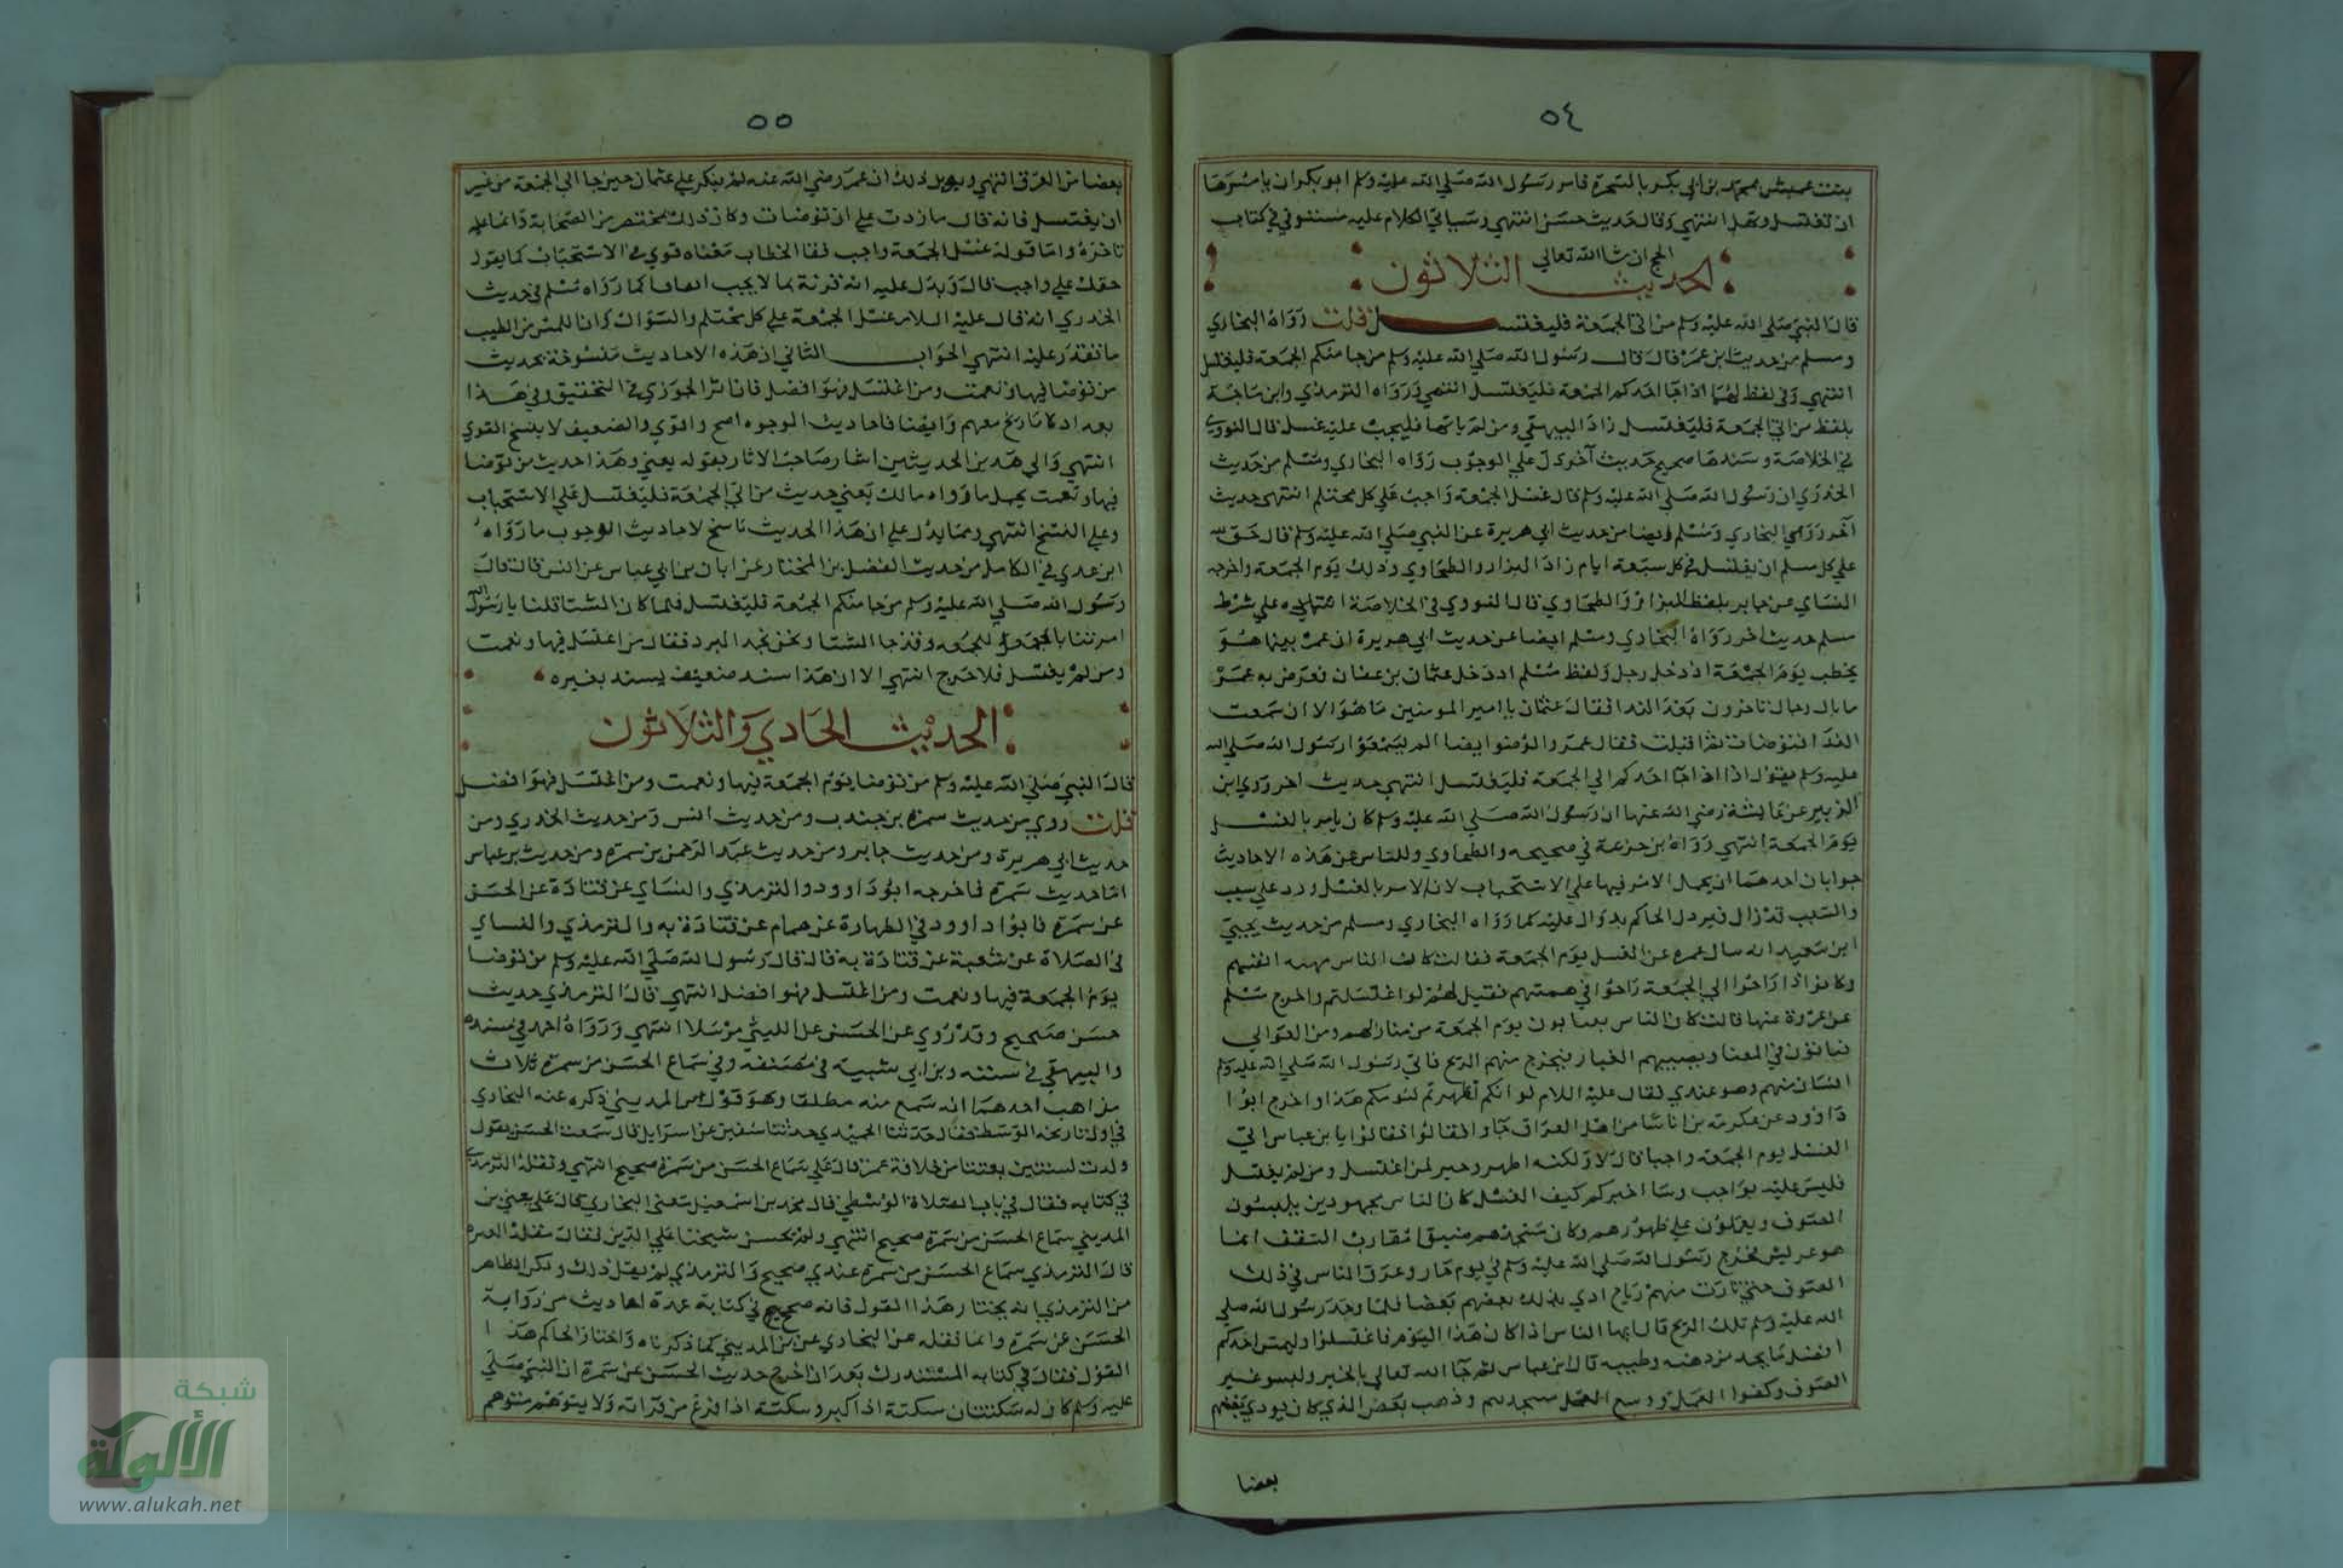 ٥٤
بنت عميس بمحمد بن ابي بكر بالشجرة فامر رسول الله صلي الله عليه وسلم ابو بكر ان يامرها
ان تغتسل وتهل انتهي وقال حديث حسن انتهي وسياتي الكلام عليه مستوفي في كتاب
الحج ان شا الله تعالي
الحديث الثلاثون
قال النبي صلي الله عليه وسلم من اتي الجمعة فليغتسل قلت رواه البخاري
ومسلم من حديث ابن عمر قال قال رسول الله صلي الله عليه وسلم من جا منكم الجمعة فليغتسل
انتهي وفي لفظ لهما اذا جا احدكم الجمعة فليغتسل انتهي ورواه الترمذي وابن ماجة
بلفظ من اتي الجمعة فليغتسل زاد البيهقي ومن لم ياتها فليجب عليه غسل قال النووي
في الخلاصة وسندها صحيح حديث آخر دل علي الوجوب رواه البخاري ومسلم من حديث
الخدري ان رسول الله صلي الله عليه وسلم قال غسل الجمعة واجب علي كل محتلم انتهي حديث
آخر روي البخاري ومسلم ايضا من حديث ابي هريرة عن النبي صلي الله عليه وسلم قال حق لله
علي كل مسلم ان يغتسل في كل سبعة ايام زاد البزار والطحاوي وذلك يوم الجمعة واخرجه
النساي عن جابر بلفظ البزار والطحاوي قال النووي في الخلاصة اسناده علي شرط
مسلم حديث اخر رواه البخاري ومسلم ايضا عن حديث ابي هريرة ان عمر بينما هو
يخطب يوم الجمعة اذ دخل رجل ولفظ مسلم اذ دخل عثمان بن عفان فعرض به عمر
ما بال رجال تاخرون بعد الندا فقال عثمان يا امير المومنين ما هو الا ان سمعت
الندا فتوضات ثم اقبلت فقال عمر والوضو ايضا الم تسمعوا رسول الله صلي الله
عليه وسلم يقول اذا جا احدكم الي الجمعة فليغتسل انتهي حديث اخر روي ابن
الزبير عن عايشة رضي الله عنها ان رسول الله صلي الله عليه وسلم كان يامر بالغسل
يوم الجمعة انتهي رواه بن خزيمة في صحيحه والطحاوي وللناس عن هذه الاحاديث
جوابان احدهما ان يحمل الامر فيها علي الاستحباب لان الامر بالغسل ورد علي سبب
والسبب قد زال فيزول الحكم بزوال عليته كما رواه البخاري ومسلم من حديث يحيي
ابن سعيد انه سال عمرة عن الغسل يوم الجمعة فقالت كان الناس مهنة انفسهم
وكانوا اذا راحوا الي الجمعة راحوا في هيئتهم فقيل لهم لو اغتسلتم واخرج مسلم
عن عروة عنها قالت كان الناس ينتابون يوم الجمعة من منازلهم ومن العوالي
فياتون في العبا ويصيبهم الغبار فيخرج منهم الريح فاتي رسول الله صلي الله عليه وسلم
انسان منهم وهو عندي فقال عليه السلام لو انكم تطهرتم ليومكم هذا واخرج ابو
داوود عن عكرمة بن اناسا من اهل العراق جاوا فقالوا يا بن عباس اتري
الغسل يوم الجمعة واجبا قال لا ولكنه اطهر وخير لمن اغتسل ومن لم يغتسل
فليس عليه بواجب وسا اخبركم كيف الغسل كان الناس مجهودين يلبسون
الصوف ويعملون علي ظهورهم وكان مسجدهم ضيقا مقارب السقف انما
هو عريش فخرج رسول الله صلي الله عليه وسلم في يوم حار وعرق الناس في ذلك
الصوف حتي ثارت منهم رياح اذي بذلك بعضهم بعضا فلما وجد رسول الله صلي
الله عليه وسلم تلك الريح قال ايها الناس اذا كان هذا اليوم فاغتسلوا وليمس احدكم
افضل ما يجد من دهنه وطيبه قال ابن عباس ثم جا الله تعالي بالخير ولبسو غير
الصوف وكفوا العمل ووسع مسجدهم وذهب بعض الذي كان يوذي بعضهم
بعضا
٥٥
بعضا من العرق انتهي ويدل ذلك ان عمر رضي الله عنه لم ينكر علي عثمان حين جا الي الجمعة من غير
ان يغتسل فانه قال ما زدت علي ان توضات وكان ذلك بمحضر من الصحابة
تاخره واما قوله غسل الجمعة واجب معناه قوي في الاستحباب كما يقول
حقك علي واجب قال ويدل عليه انه قرنه بما لا يجب اتفاقا كما رواه مسلم في حديث
الخدري انه قال عليه السلام غسل الجمعة علي كل محتلم والسواك وان يمس من الطيب
ما يقدر عليه انتهي الجواب الثاني ان هذه الاحاديث منسوخة بحديث
من توضا فبها ونعمت ومن اغتسل فهو افضل قال الجوزي في التحقيق وفي هذا
بعد اذ لا تاريخ معهم وايضا فاحاديث الوجوه اصح واقوي والضعيف لا ينسخ القوي
انتهي والي هذين الحديثين اشار صاحب الاثار بقوله يعني وهذا حديث من توضا
فبها ونعمت يحمل ما رواه مالك يعني حديث من اتي الجمعة فليغتسل علي الاستحباب
وعلي النسخ انتهي ومما يدل علي ان هذا الحديث ناسخ لاحاديث الوجوب ما رواه
ابن عدي في الكامل من حديث الفضل بن المختار عن ابان بن ابي عباس عن انس قال قال
رسول الله صلي الله عليه وسلم من جا منكم الجمعة فليغتسل فلما كان الشتا قلنا يا رسول الله
امرتنا للجمعة وقد جا الشتا ونحن نجد البرد فقال من اغتسل فبها ونعمت
ومن لم يغتسل فلا حرج انتهي الا ان هذا سند ضعيف يسند بغيره
الحديث الحادي والثلاثون
قال النبي صلي الله عليه وسلم من توضا يوم الجمعة فبها ونعمت ومن اغتسل فهو افضل
قلت روي من حديث سمرة بن جندب ومن حديث انس ومن حديث الخدري ومن
حديث ابي هريرة ومن حديث جابر ومن حديث عبد الرحمن بن سمرة ومن حديث بن عباس
اما حديث سمرة فاخرجه ابو داوود والترمذي والنساي عن قتادة عن الحسن
عن سمرة فابو داوود في الطهارة عن همام عن قتادة به والترمذي والنساي
في الصلاة عن شعبة عن قتادة به قال قال رسول الله صلي الله عليه وسلم من توضا
يوم الجمعة فبها ونعمت ومن اغتسل فهو افضل انتهي قال الترمذي حديث
حسن صحيح وقد روي عن الحسن عن النبي مرسلا انتهي ورواه احمد في مسنده
والبيهقي في سننه وبن ابي شيبة في مصنفه وفي سماع الحسن من سمرة ثلاث
مذاهب احدهما انه سمع منه مطلقا وهو قول بن المديني ذكره عنه البخاري
في اول تاريخه الوسط فقال حدثنا الحميدي حدثنا سفين عن اسرايل قال سمعت الحسن يقول
ولدت لسنتين بقيتا من خلافة عمر قال علي سماع الحسن من سمرة صحيح انتهي ونقله الترمذي
في كتابه فقال في باب الصلاة الوسطي قال محمد بن اسمعيل يعني البخاري قال علي يعني بن
المديني سماع الحسن من سمرة صحيح انتهي ولم يحسن شيخنا علي الدين فقال
قال الترمذي سماع الحسن من سمرة عندي صحيح والترمذي لم يقل ذلك ولكن الظاهر
من الترمذي انه يختار هذا القول فانه صحح في كتابه عدة احاديث من رواية
الحسن عن سمرة وانما نقله عن البخاري عن بن المديني كما ذكرناه واختار الحاكم هذا
القول فقال في كتابه المستدرك بعد ان اخرج حديث الحسن عن سمرة ان النبي صلي
عليه وسلم كان له سكتتان سكتة اذا كبر وسكتة اذا فرغ من قراته ولا يتوهم متوهم
شبكة
الألوكة
www.alukah.net